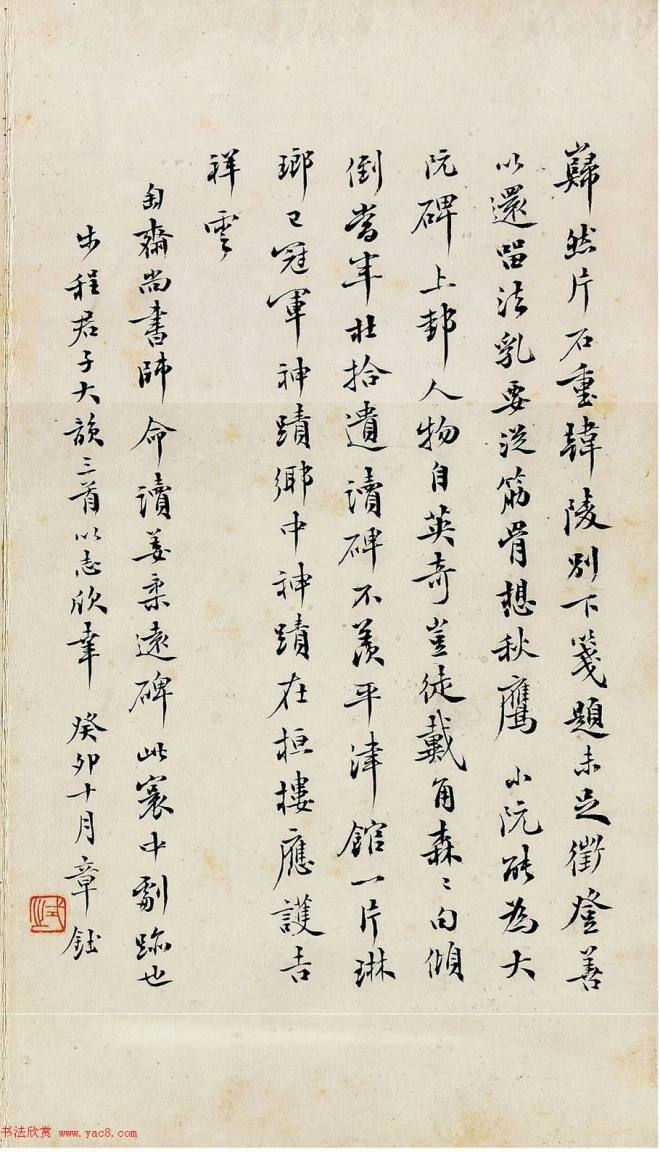 巋然片石重韓陵別下箋題未足徵登善
以還留法乳要從筋骨想秋鷹小阮能為大
阮碑上邽人物自英奇豈徒戴角森〻句傾
倒當年杜拾遺讀碑不羨平津館一片琳
瑯已冠軍神蹟鄉中神蹟在桓樓應護吉
祥雲
匋齋尚書師命讀姜柔遠碑此寰中劇跡也
步程君子大韻三首以志欣幸 癸卯十月章鈺
书法欣赏 www.yac8.com